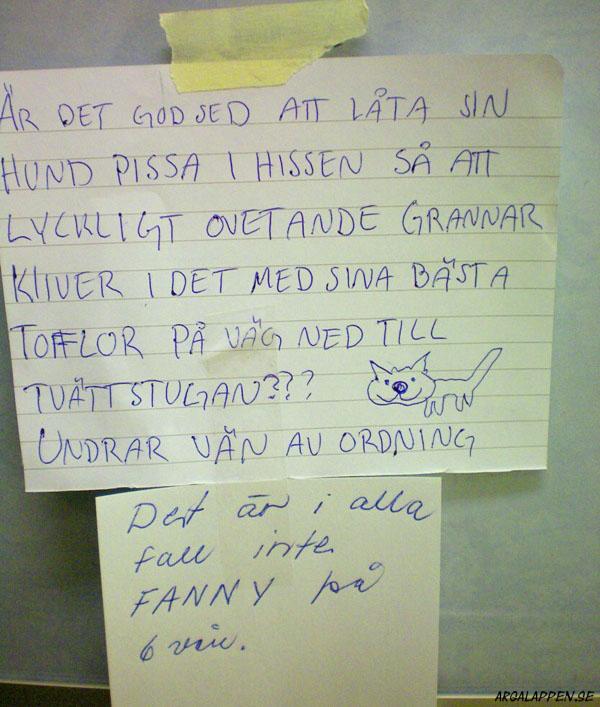 ÄR DET GOD SED ATT LÅTA SIN
HUND PISSA I HISSEN SÅ ATT
LYCKLIGT OVETANDE GRANNAR
KLIVER I DET MED SINA BÄSTA
TOFFLOR PÅ VÄG NED TILL
TVÄTTSTUGAN???
UNDRAR VÄN AV ORDNING
Det är i alla
fall inte
FANNY på
6 vån.
ARGALAPPEN.SE